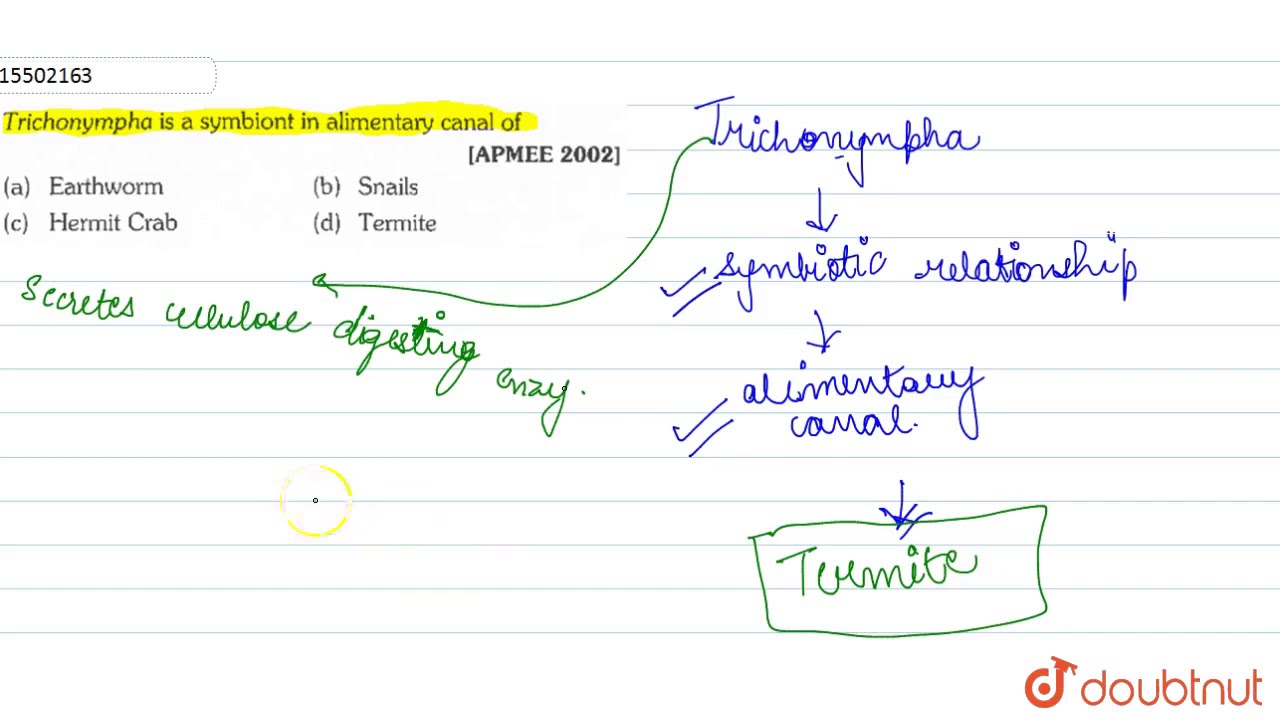 15502163
Trichonympha is a symbiont in alimentary canal of
[APMEE 2002]
(a) Earthworm (b) Snails
(c) Hermit Crab (d) Termite
Secretes cellulose digesting enzy.
Trichonympha
symbiotic relationship
alimentary
canal.
Termite
doubtnut